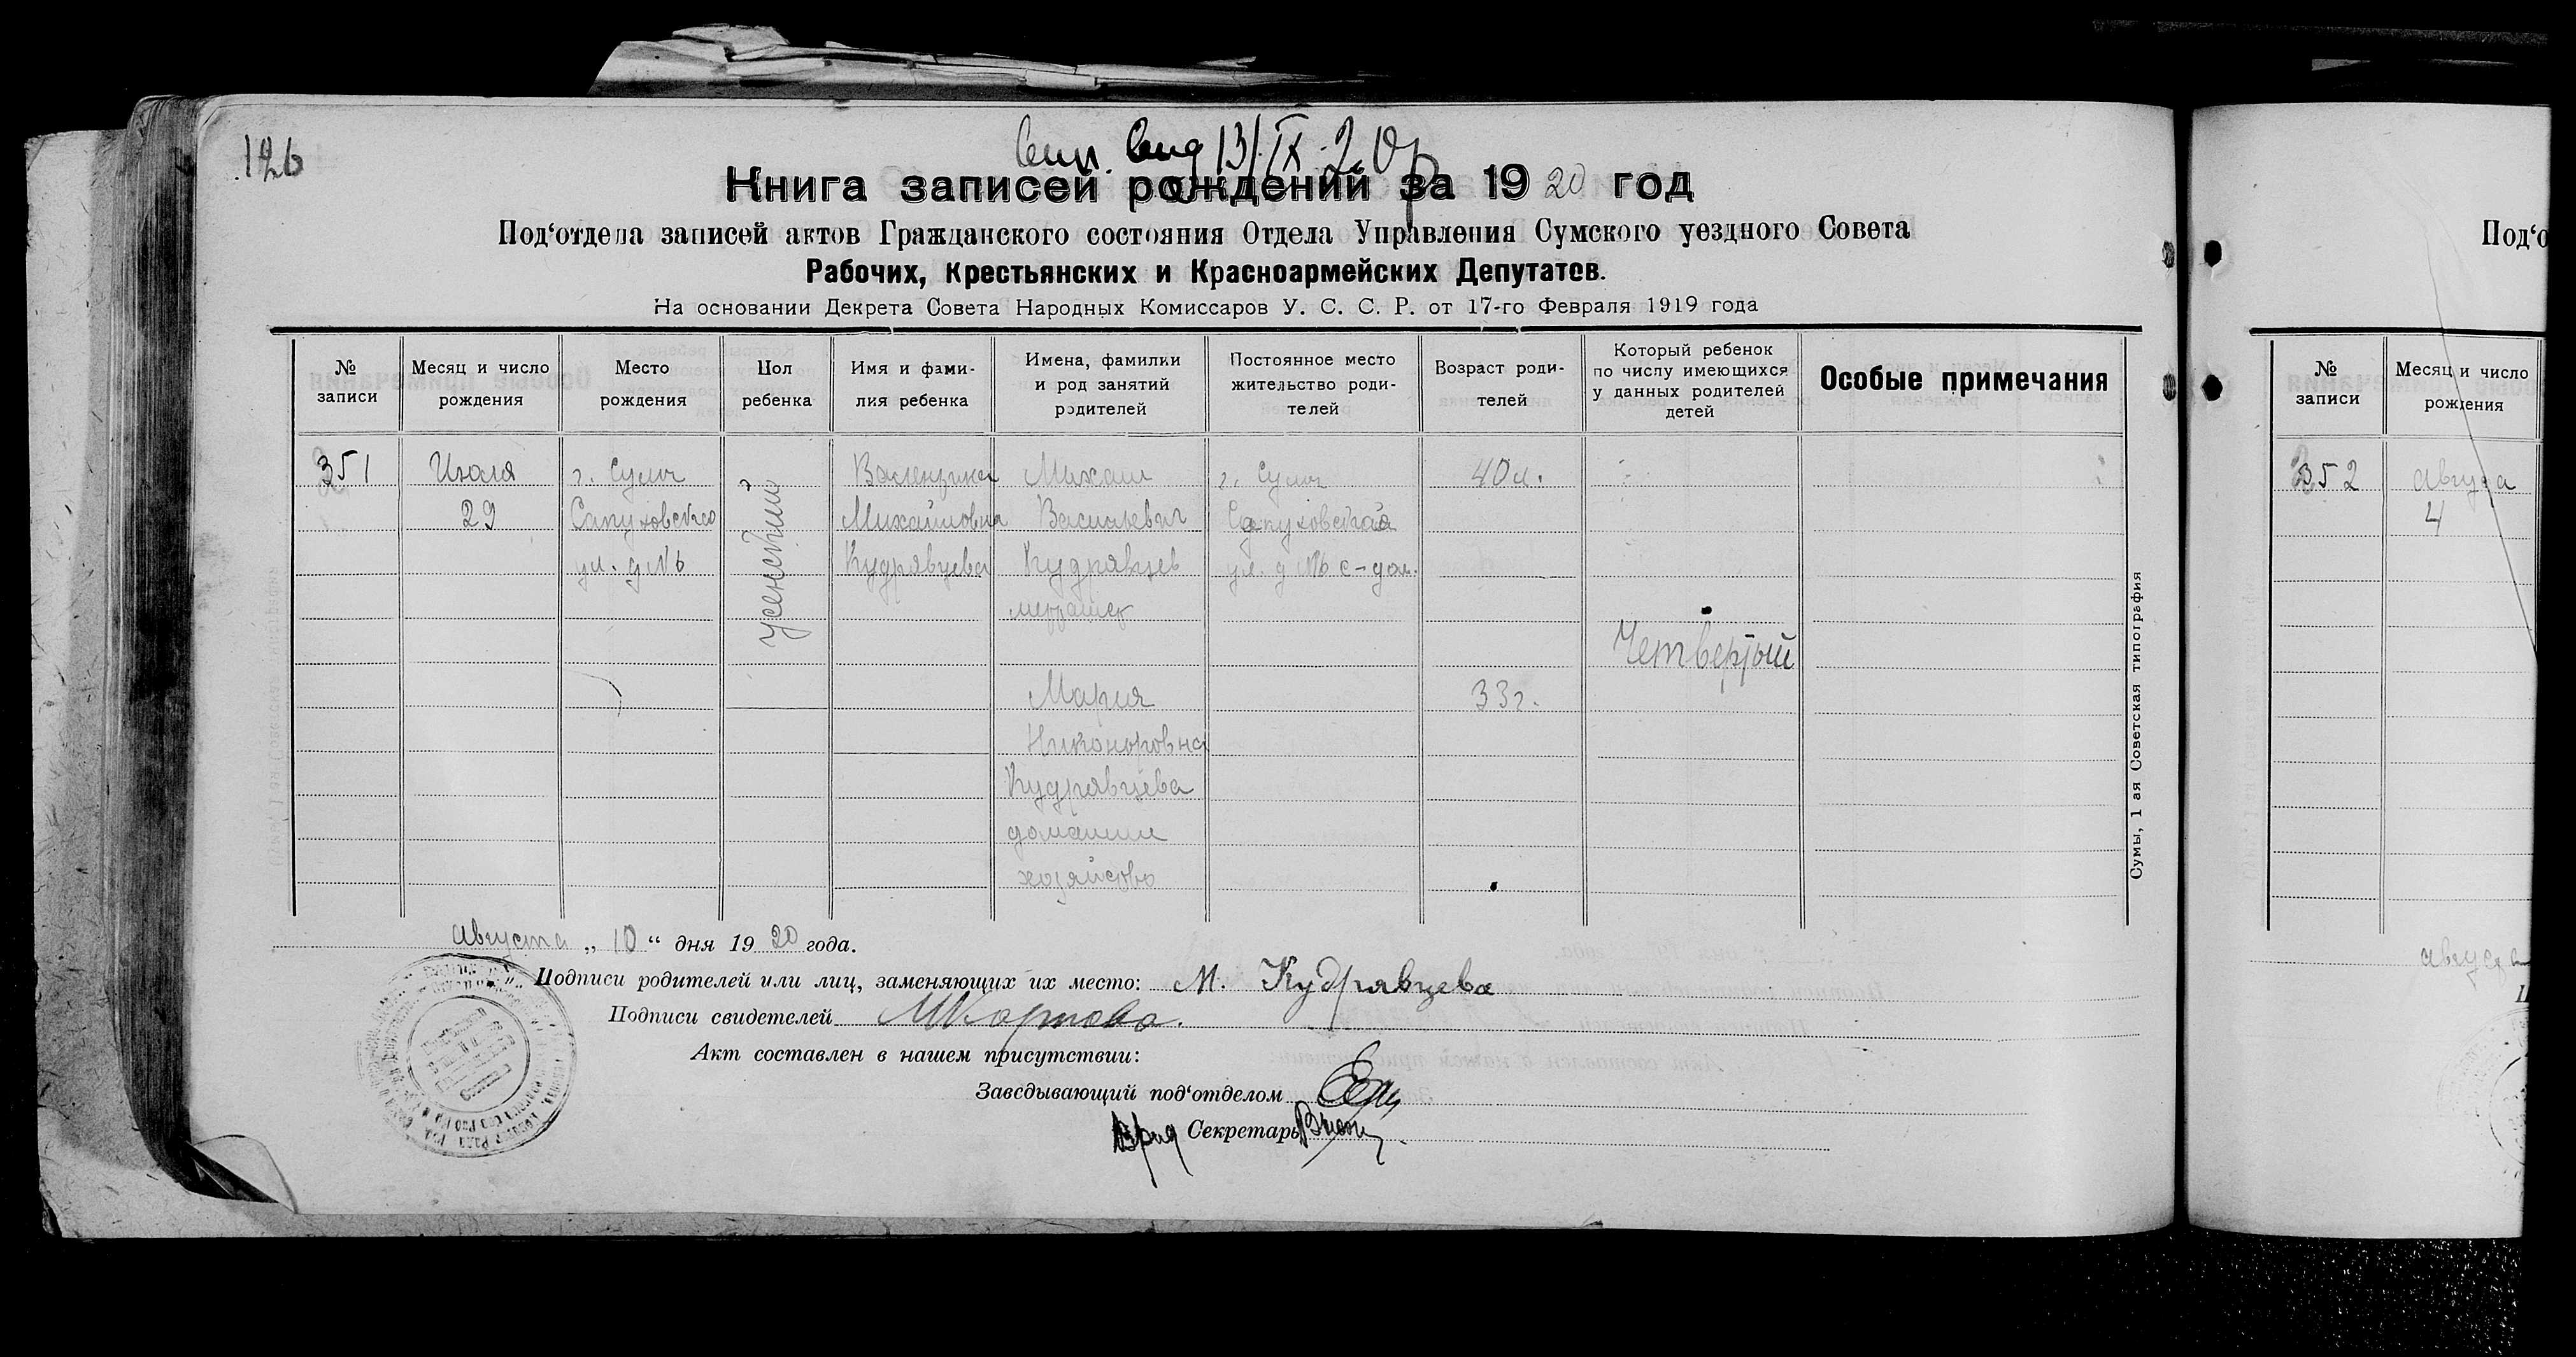 126
13/IX 20 г
Книга записей рождений за 1920 год
Под‘отдела записей актов Гражданского состояния Отдела Управления Сумского уездного Совета
Рабочих, Крестьянских и Красноармейских Депутатов.
На основании Декрета Совета Народных Комиссаров У. С. С. Р. от 17-го Февраля 1919 года
№ записи
Месяц и число рождения
Место рождения
Пол ребенка
Имя и фамилия ребенка
Имена, фамилии и род занятий родителей
Постоянное место жительство родителей
Возраст родителей
Который ребенок по числу имеющихся у данных родителей детей
Особые примечания
351
Июля
29
г. Сумы
ул. д №
женский
Валентина
Михайловна
Кудрявцева
Михаил
Васильевич
Кудрявцев
Мария
Никоноровна
Кудрявцева
домашн
хозяйство
г. Сумы
ул. д №
40 л.
33 г.
Четвертый
Августа „ 10 “ дня 1920 года.
Подписи родителей или лиц, заменяющих их место: М. Кудрявцева
Подписи свидетелей МКартова.
Акт составлен в нашем присутствии:
Заведывающий под‘отделом
Врид Секретарь
Сумы, 1 ая Советская типография
Под‘о
№ записи
Месяц и число рождения
352
Августа
4
августа